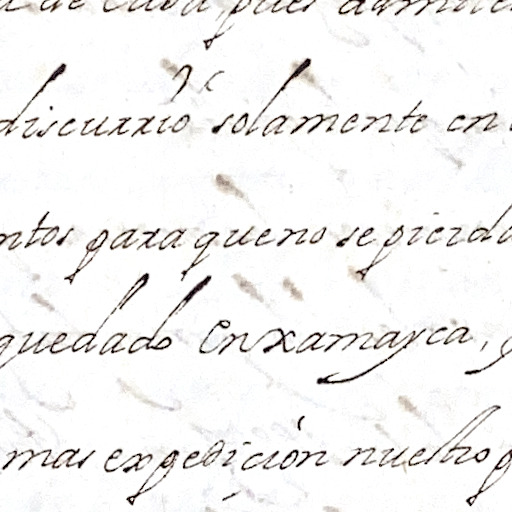 de cada, pues
discurrió solamente en
ntos para que no se pierda
quedado en xamayca,
mas expedición nuestro